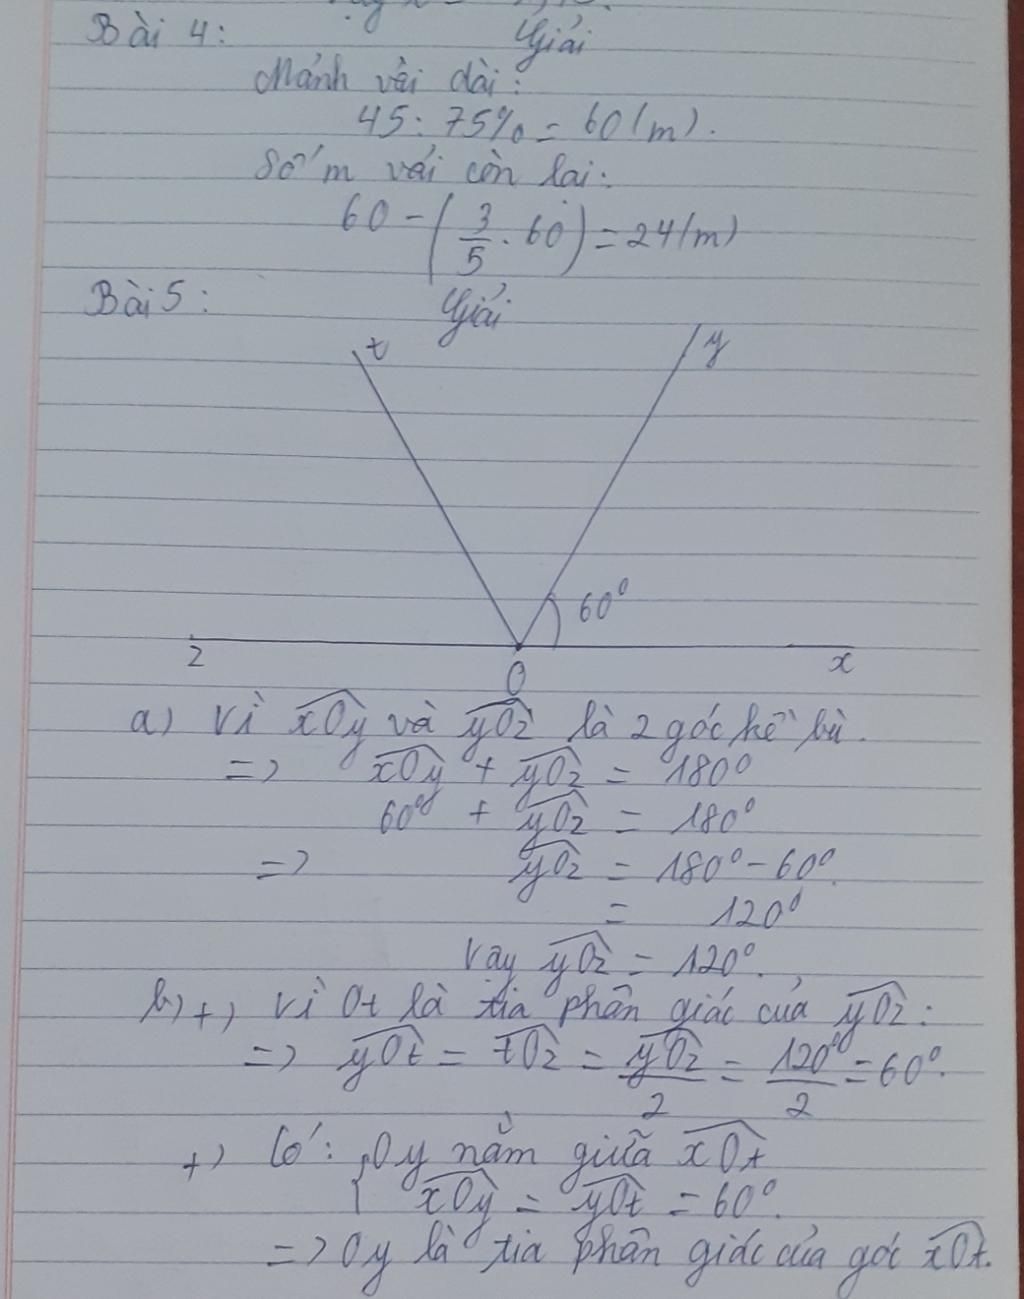 Bài 4: Giải
Mảnh vải dài:
45 : 75% = 60 (m).
Số m vải còn lại:
60 - (3/5 . 60) = 24 (m)
Bài 5: Giải
t y
60⁰
z O x
a) Vì xOy và yOz là 2 góc kề bù.
=> xOy + yOz = 180⁰
60⁰ + yOz = 180⁰
=> yOz = 180⁰ - 60⁰.
= 120⁰
Vậy yOz = 120⁰.
b) +) Vì Ot là tia phân giác của yOz:
=> yOt = tOz = yOz/2 = 120⁰/2 = 60⁰.
+) Có: { Oy nằm giữa xOt
xOy = yOt = 60⁰.
=> Oy là tia phân giác của góc xOt.